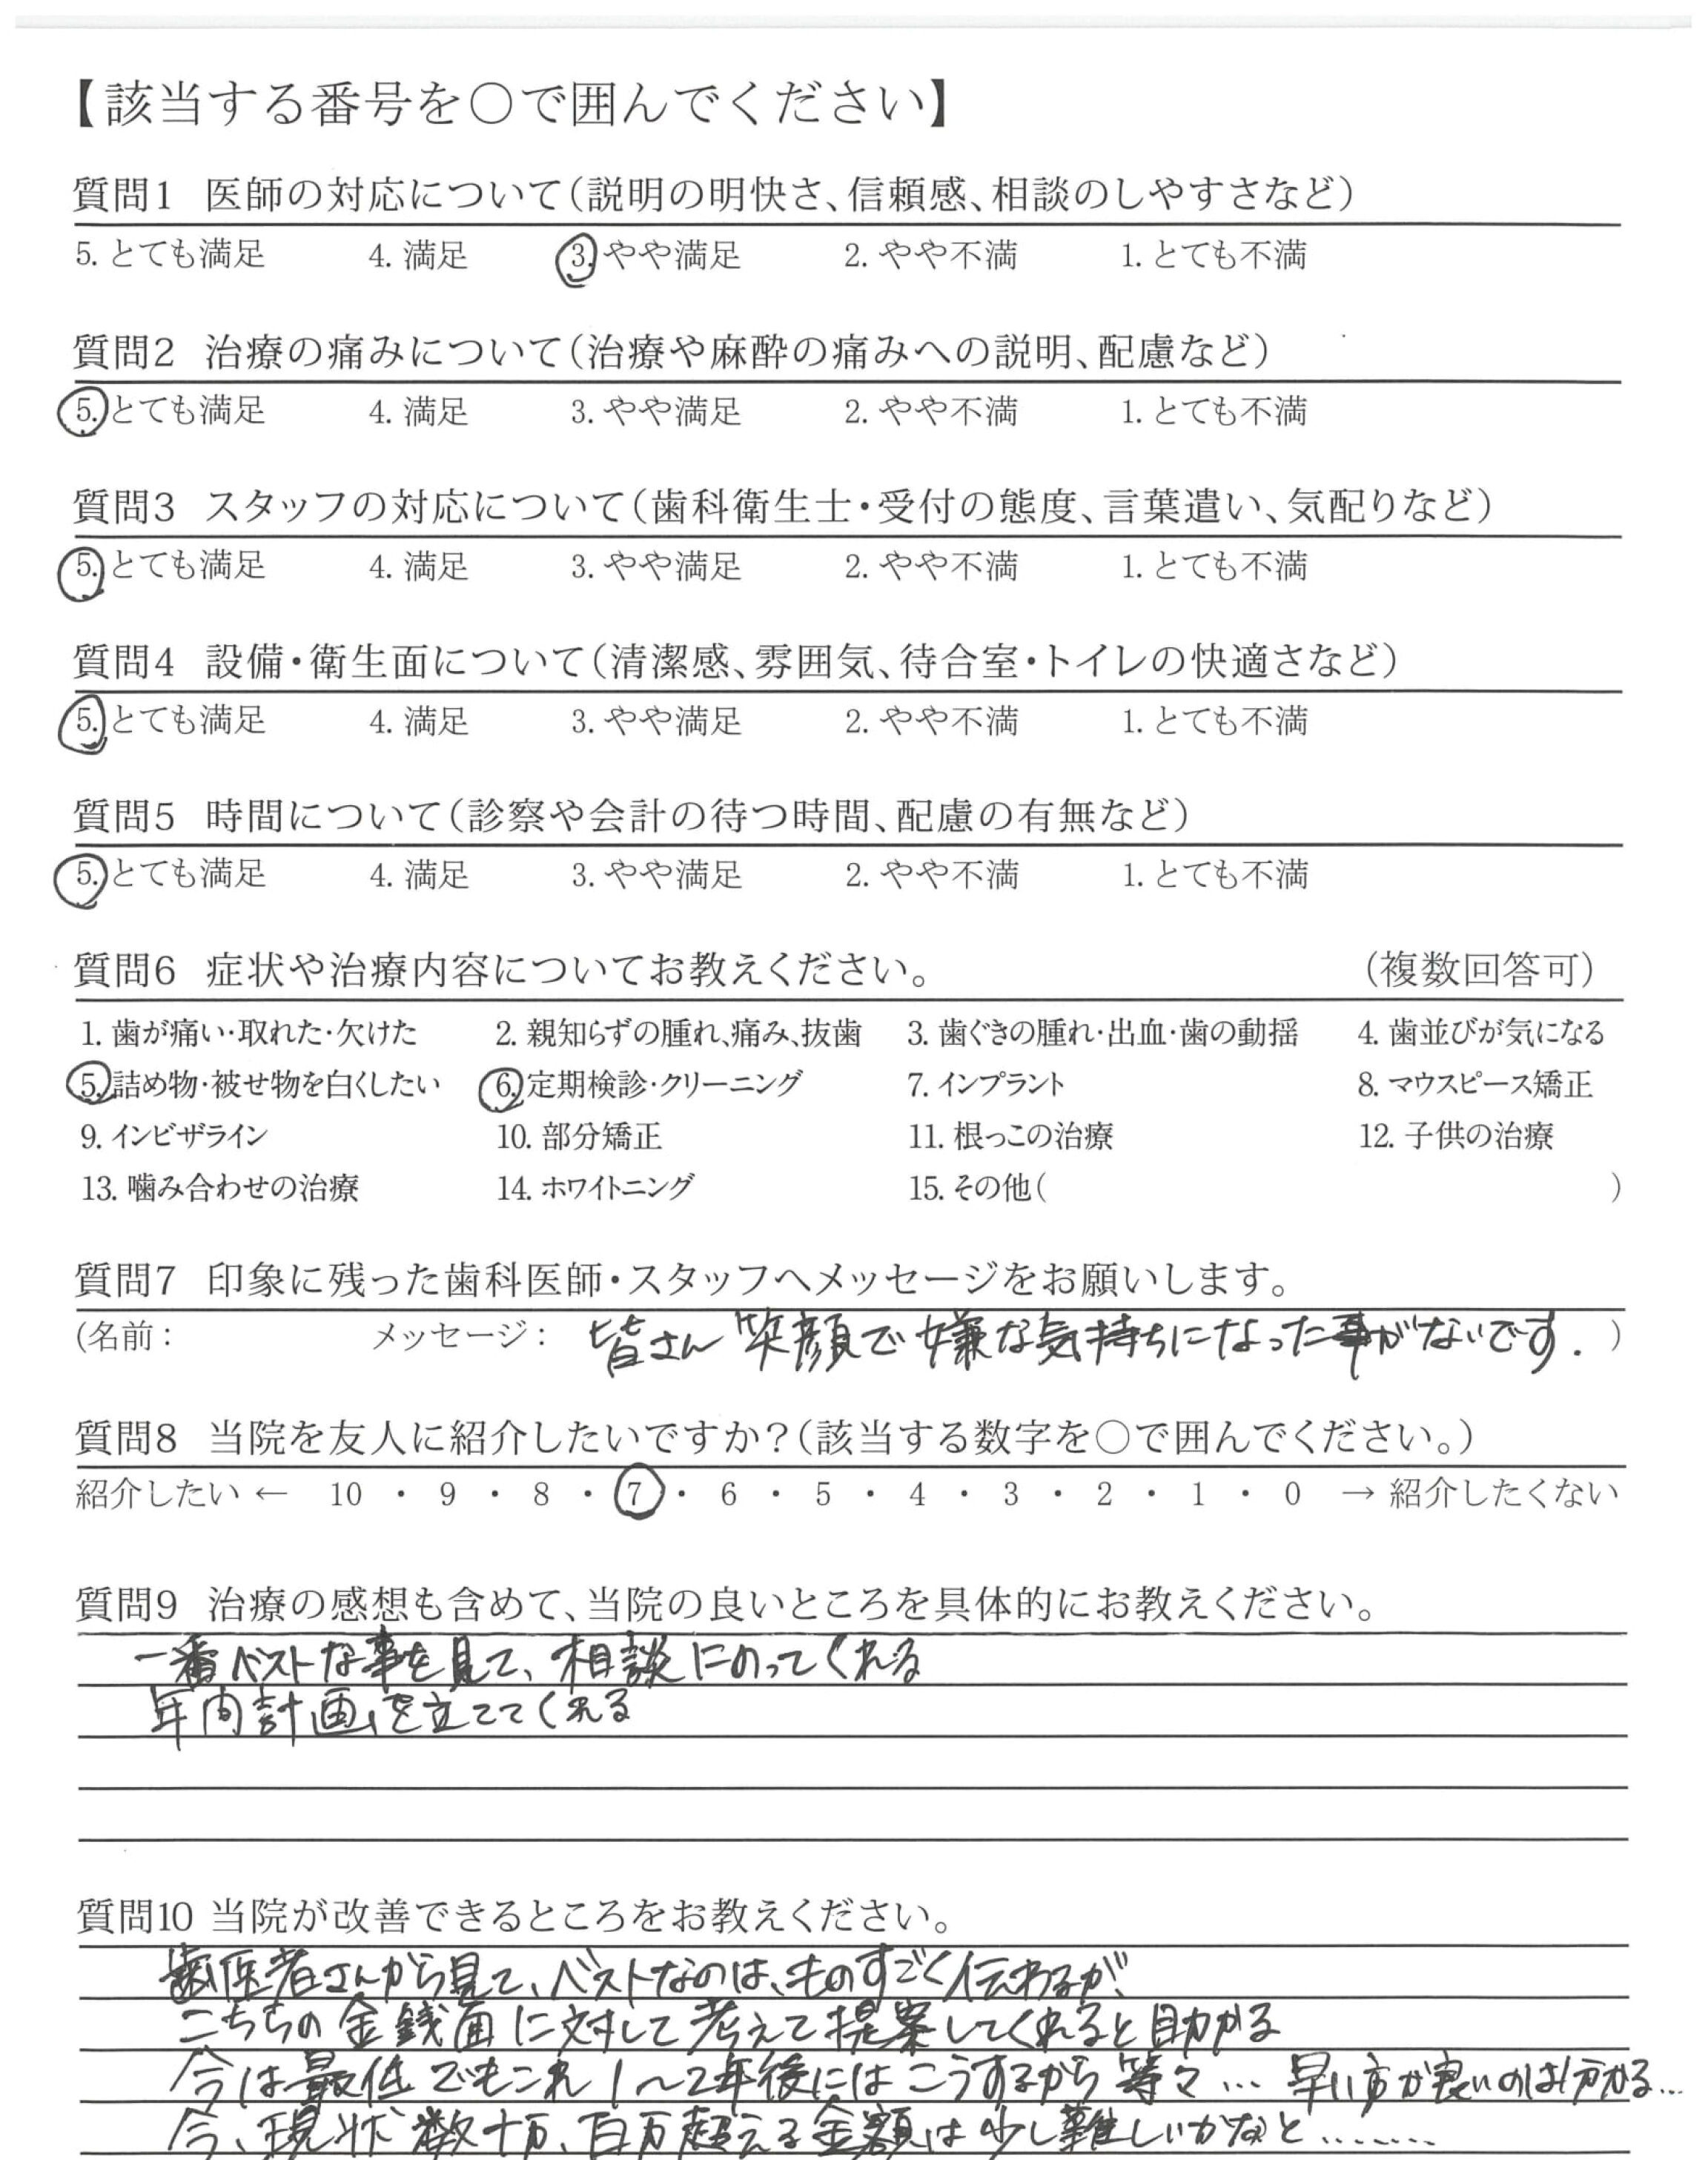 【該当する番号を○で囲んでください】
質問1 医師の対応について（説明の明快さ、信頼感、相談のしやすさなど）
5. とても満足 4. 満足 3. やや満足 2. やや不満 1. とても不満
質問2 治療の痛みについて（治療や麻酔の痛みへの説明、配慮など）
5. とても満足 4. 満足 3. やや満足 2. やや不満 1. とても不満
質問3 スタッフの対応について（歯科衛生士・受付の態度、言葉遣い、気配りなど）
5. とても満足 4. 満足 3. やや満足 2. やや不満 1. とても不満
質問4 設備・衛生面について（清潔感、雰囲気、待合室・トイレの快適さなど）
5. とても満足 4. 満足 3. やや満足 2. やや不満 1. とても不満
質問5 時間について（診察や会計の待つ時間、配慮の有無など）
5. とても満足 4. 満足 3. やや満足 2. やや不満 1. とても不満
質問6 症状や治療内容についてお教えください。 （複数回答可）
1. 歯が痛い・取れた・欠けた 2. 親知らずの腫れ、痛み、抜歯 3. 歯ぐきの腫れ・出血・歯の動揺 4. 歯並びが気になる
5. 詰め物・被せ物を白くしたい 6. 定期検診・クリーニング 7. インプラント 8. マウスピース矯正
9. インビザライン 10. 部分矯正 11. 根っこの治療 12. 子供の治療
13. 噛み合わせの治療 14. ホワイトニング 15. その他（ ）
質問7 印象に残った歯科医師・スタッフへメッセージをお願いします。
（名前： メッセージ： 皆さん笑顔で嫌な気持ちになった事がないです. ）
質問8 当院を友人に紹介したいですか？（該当する数字を○で囲んでください。）
紹介したい ← 10 ・ 9 ・ 8 ・ 7 ・ 6 ・ 5 ・ 4 ・ 3 ・ 2 ・ 1 ・ 0 → 紹介したくない
質問9 治療の感想も含めて、当院の良いところを具体的にお教えください。
一番ベストな事を見て、相談にのってくれる
年内計画を立ててくれる
質問10 当院が改善できるところをお教えください。
歯医者さんから見て、ベストなのは、ものすごく伝わるが、
こちらの金銭面に対して考えて提案してくれると助かる
今は最低でもこれ 1〜2年後にはこうするから 等々… 早い方が良いのは分かる…
今、現状 数十万、百万超える金額は少し難しいかなと.......